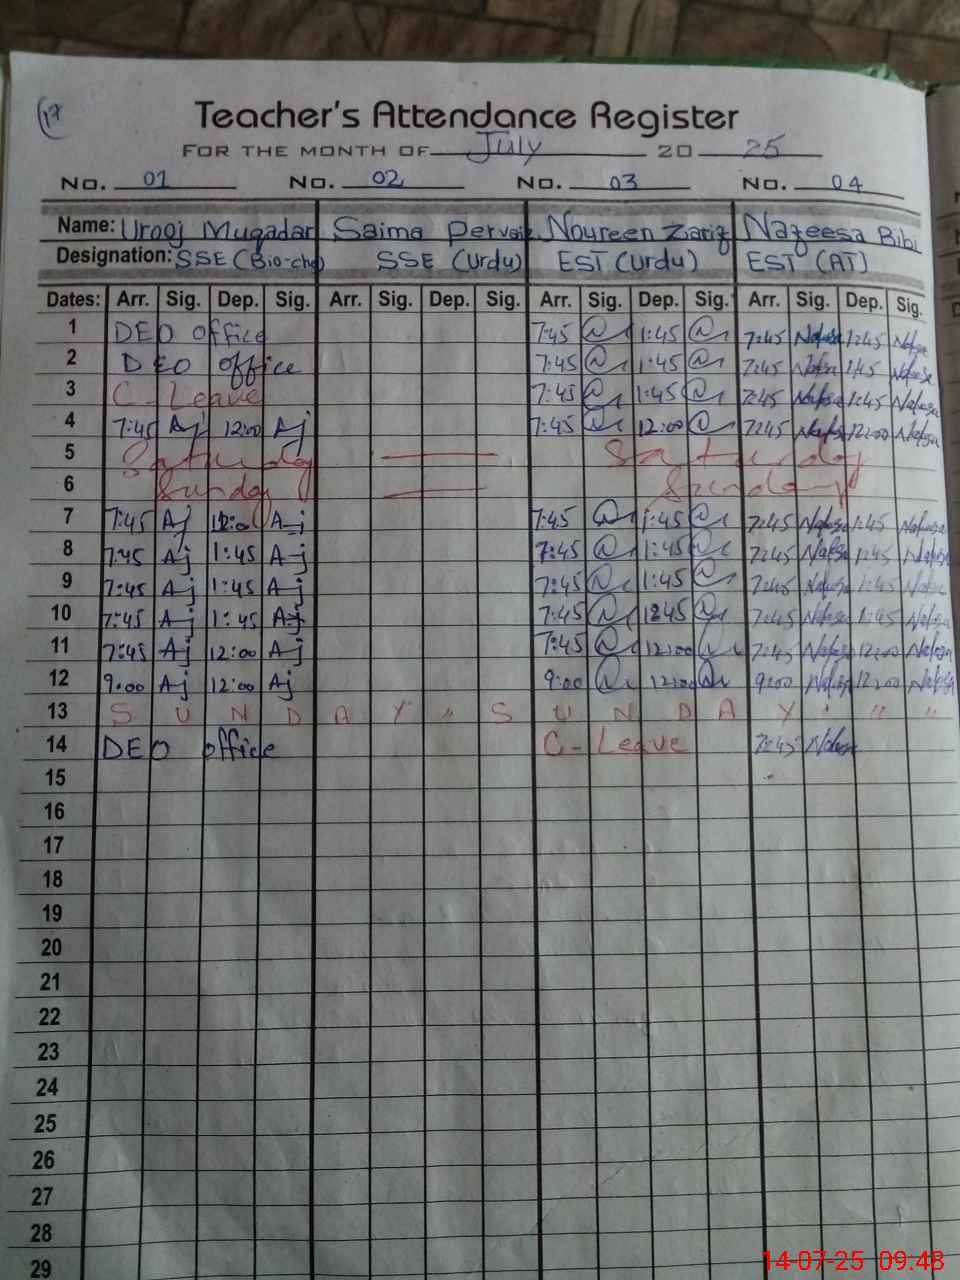 17
Teacher's Attendance Register
FOR THE MONTH OF July 20 25
No. 01 No. 02 No. 03 No. 04
Name: Urooj Muqadar Saima Pervaiz Noureen Zariq Nazeesa Bibi
Designation: SSE (Bio-che) SSE (Urdu) EST (Urdu) EST (AT)
Dates: Arr. Sig. Dep. Sig. Arr. Sig. Dep. Sig. Arr. Sig. Dep. Sig. Arr. Sig. Dep. Sig.
1 DEO office 7:45 1:45 7:45 1:45
2 DEO office 7:45 1:45 7:45 1:45
3 C-Leave 7:45 1:45 7:45 1:45
4 7:45 Aj 12:00 Aj 7:45 12:00 7:45 12:00
5 Saturday Saturday
6 Sunday Sunday
7 7:45 Aj 12:00 Aj 7:45 1:45 7:45 1:45
8 7:45 Aj 1:45 Aj 7:45 1:45 7:45 1:45
9 7:45 Aj 1:45 Aj 7:45 1:45 7:45 1:45
10 7:45 Aj 1:45 Aj 7:45 7:45 1:45
11 7:45 Aj 12:00 Aj 7:45 12:00 7:45 12:00
12 9:00 Aj 12:00 Aj 9:00 12:00 9:00 12:00
13 S U N D A Y " S U N D A Y " " "
14 DEO office C-Leave 7:45
15
16
17
18
19
20
21
22
23
24
25
26
27
28
29
14-07-25 09:48